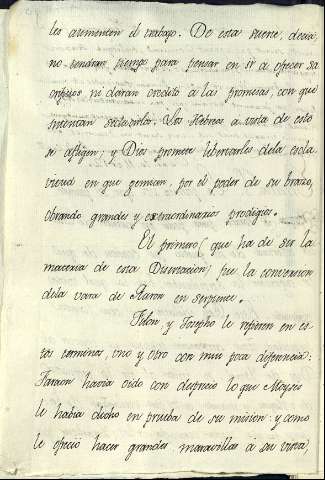 les aumenten el trabajo. De esta suerte, decia,
no tendran tiempo para pensar en ir a ofrecer sa
crificios, ni daran credito à las promesas, con que
intentan seducirlos. Los Hebreos à vista de esto
se afligen; y Dios promete libertarles dela escla
vitud en que gemian, por el poder de su brazo,
obrando grandes y extraordinarios prodigios.
El primero (que ha de ser la
materia de esta Disertacion) fue la conversion
dela vara de Aaron en serpiente.
Filon, y Josepho le refieren en es
tos terminos, uno y otro con mui poca diferencia:
Faraon havia oido con desprecio lo que Moyses
le habia dicho en prueba de su mision: y como
le ofrecio hacer grandes maravillas à su vista,